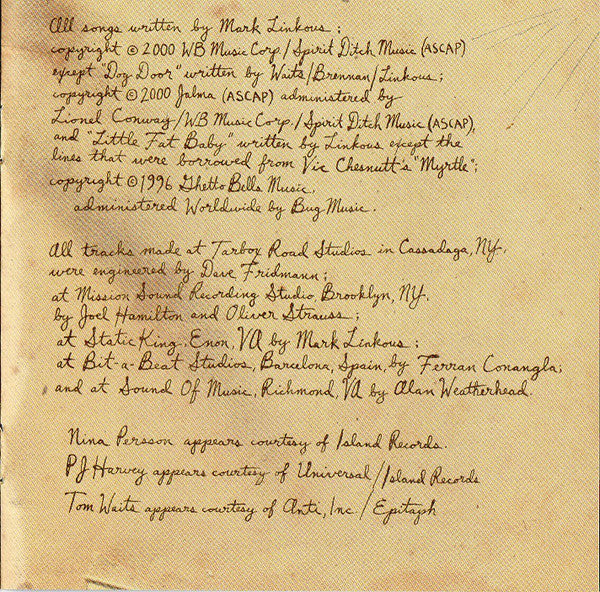 All songs written by Mark Linkous;
copyright © 2000 WB Music Corp./Spirit Ditch Music (ASCAP)
except "Dog Door" written by Waits/Brennan/Linkous;
copyright © 2000 Jalma (ASCAP) administered by
Lionel Conway/WB Music Corp./Spirit Ditch Music (ASCAP),
and "Little Fat Baby" written by Linkous except the
lines that were borrowed from Vic Chesnutt's "Myrtle";
copyright © 1996 Ghetto Bells Music.
administered Worldwide by Bug Music.
All tracks made at Tarbox Road Studios in Cassadaga, NY.
were engineered by Dave Fridmann;
at Mission Sound Recording Studio, Brooklyn, NY.
by Joel Hamilton and Oliver Strauss;
at Static King, Enon, VA by Mark Linkous;
at Bit-a-Beat Studios, Barcelona, Spain, by Ferran Conangla;
and at Sound Of Music, Richmond, VA by Alan Weatherhead.
Nina Persson appears courtesy of Island Records.
PJ Harvey appears courtesy of Universal/Island Records
Tom Waits appears courtesy of Anti, Inc./Epitaph